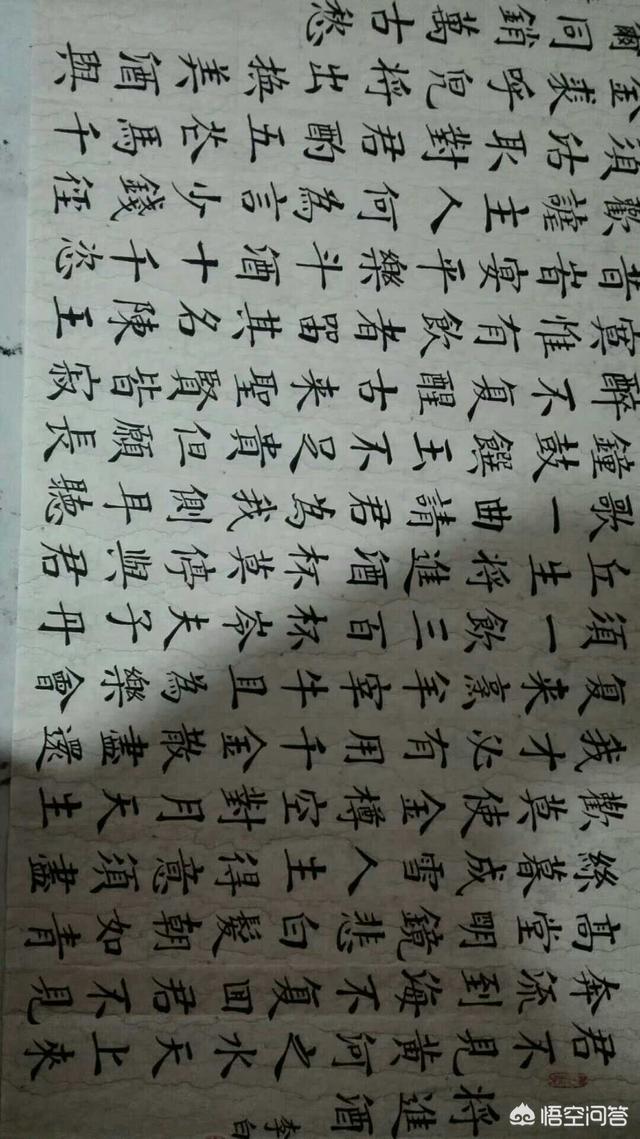 將進酒
李白
君不見黃河之水天上来
奔流到海不复回君不見
高堂明鏡悲白髮朝如青
絲暮成雪人生得意須盡
歡莫使金樽空對月天生
我才必有用千金散盡還
复来烹羊宰牛且為樂會
須一飲三百杯岑夫子丹
丘生將進酒杯莫停與君
歌一曲請君為我側耳聽
鐘鼓饌玉不足貴但願長
醉不复醒古来聖賢皆寂
寞惟有飲者留其名陳王
昔旹宴平樂斗酒十千恣
歡謔主人何為言少錢徑
須沽取對君酌五芲馬千
金裘呼兒將出換美酒與
爾同銷萬古愁
悟空问答